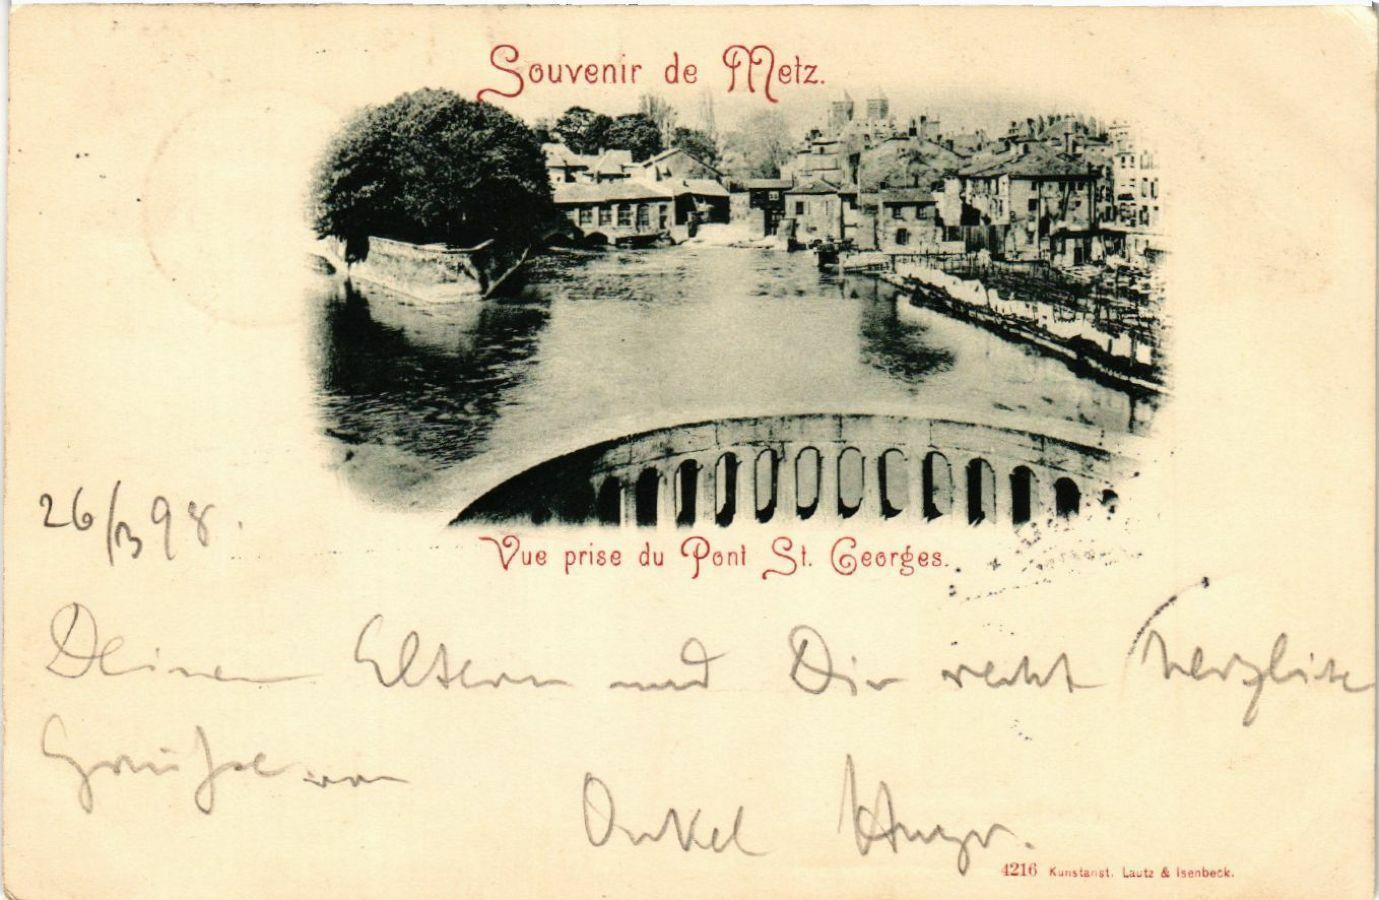 Souvenir de Metz.
Vue prise du Pont St. Georges.
26/3 98.
Deinen Eltern und Dir recht herzliche
Grüße von
Onkel Hugo.
4216 Kunstanst. Lautz & Isenbeck.